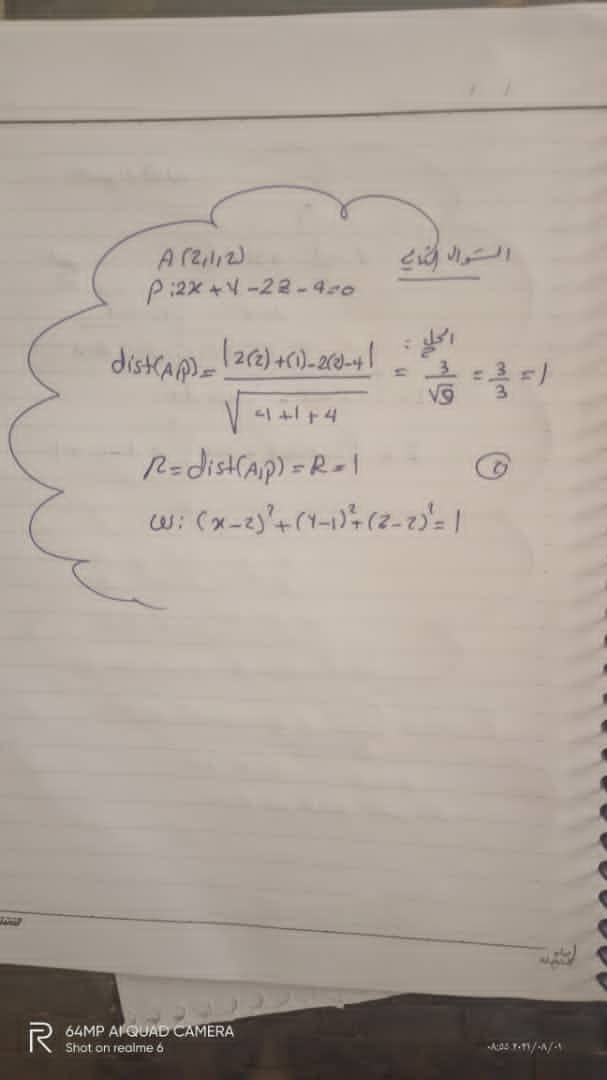 السؤال الثاني
A(2,1,2)
P:2x+y-2z-4=0
الحل:
dist(A,P)= |2(2)+(1)-2(2)-4| / √4+1+4 = 3/√9 = 3/3 = 1
R=dist(A,P)=R=1
ω: (x-2)²+(y-1)²+(z-2)²=1
R 64MP AI QUAD CAMERA
Shot on realme 6
٠٨:٥٥ ٢٠٢١/٠٨/٠١